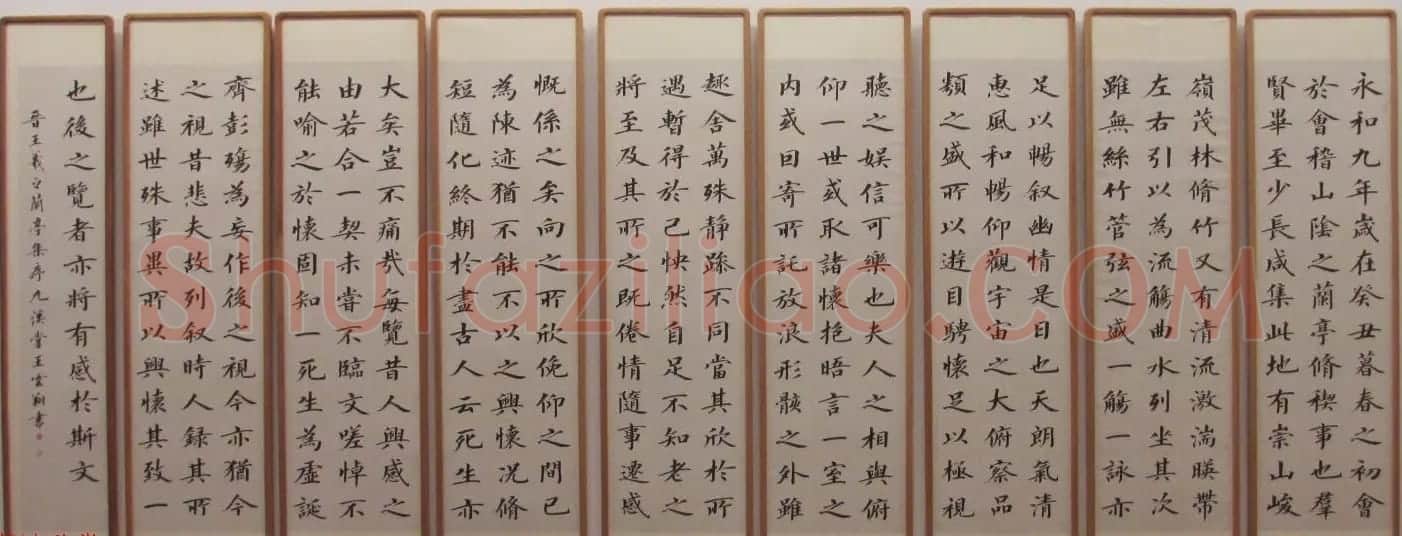 永和九年歲在癸丑暮春之初會
於會稽山陰之蘭亭脩禊事也羣
賢畢至少長咸集此地有崇山峻
嶺茂林脩竹又有清流激湍暎帶
左右引以為流觴曲水列坐其次
雖無絲竹管弦之盛一觴一詠亦
足以暢叙幽情是日也天朗氣清
惠風和暢仰觀宇宙之大俯察品
類之盛所以遊目騁懷足以極視
聽之娛信可樂也夫人之相與俯
仰一世或取諸懷抱晤言一室之
内或因寄所託放浪形骸之外雖
趣舍萬殊静躁不同當其欣於所
遇暫得於己怏然自足不知老之
將至及其所之既倦情隨事遷感
慨係之矣向之所欣俛仰之間已
為陳迹猶不能不以之興懷况脩
短隨化終期於盡古人云死生亦
大矣豈不痛哉每覽昔人興感之
由若合一契未嘗不臨文嗟悼不
能喻之於懷固知一死生為虛誕
齊彭殤為妄作後之視今亦猶今
之視昔悲夫故列叙時人録其所
述雖世殊事異所以興懷其致一
也後之覽者亦將有感於斯文
晉王羲之蘭亭集序九漢堂王雲翔書
Shufaziliao.COM